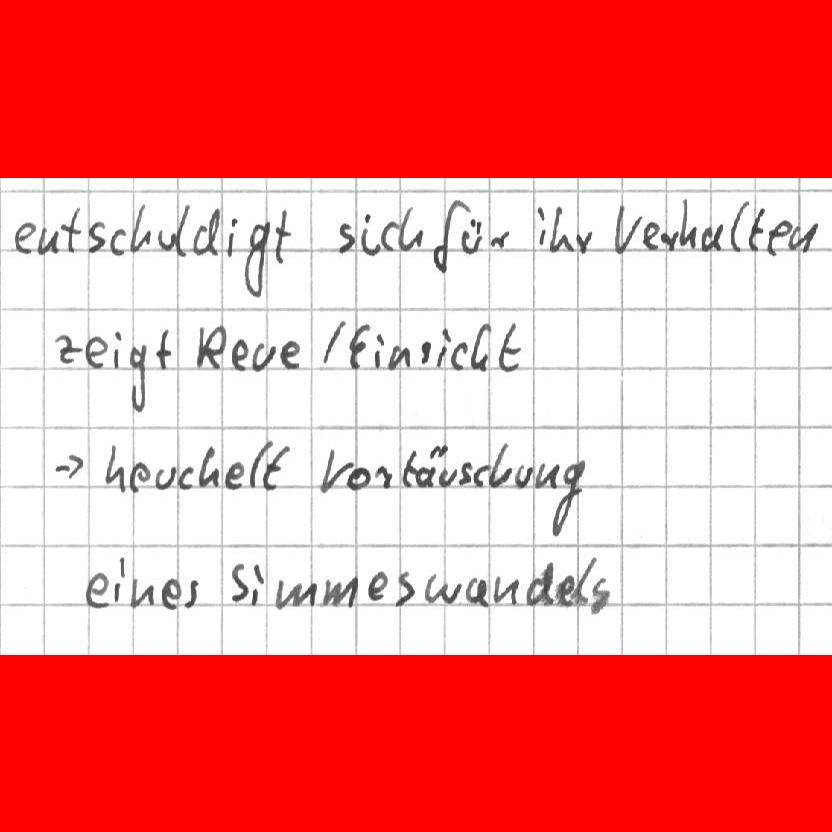 entschuldigt sich für ihr Verhalten
zeigt Reue / Einsicht
→ heuchelt Vortäuschung
eines Simmeswandels